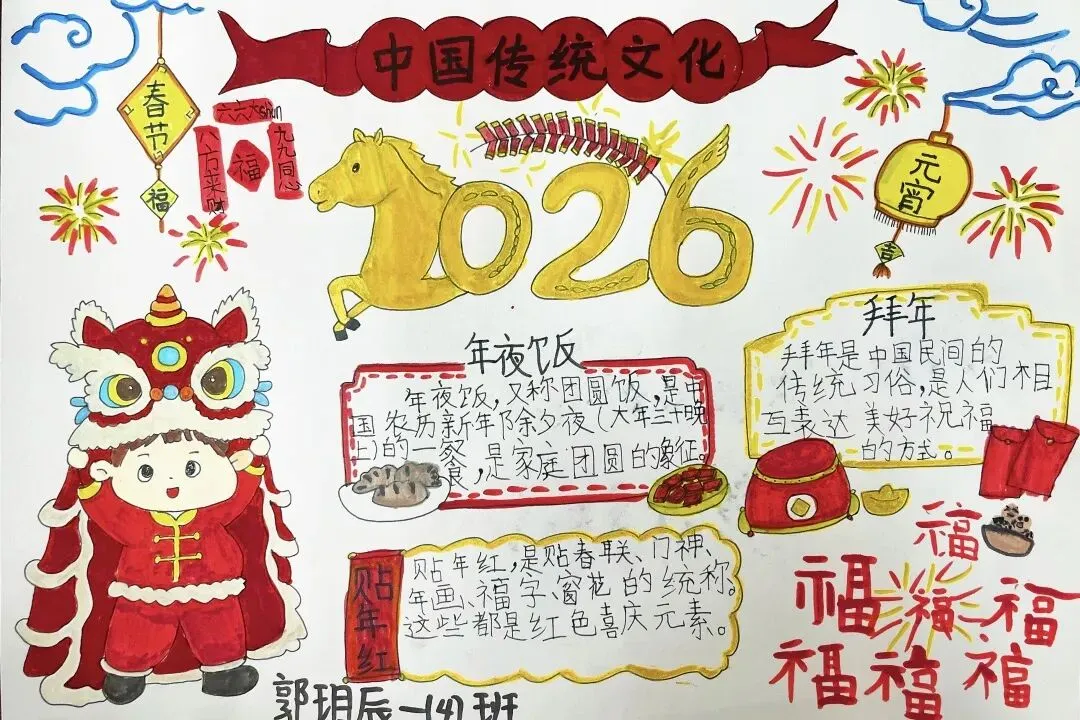 中国传统文化
春节
福
六六大shun
八方来财
福
九九同心
元宵
吉
2026
年夜饭
年夜饭,又称团圆饭,是中
国农历新年除夕夜(大年三十晚
上)的一餐
食,是家庭团圆的象征。
拜年
拜年是中国民间的
传统习俗,是人们相
互表达美好祝福
的方式。
贴年红
贴年红,是贴春联、门神、
年画、福字、窗花的统称。
这些都是红色喜庆元素。
福
福
福
福
福
福
福
郭玥辰一(4)班